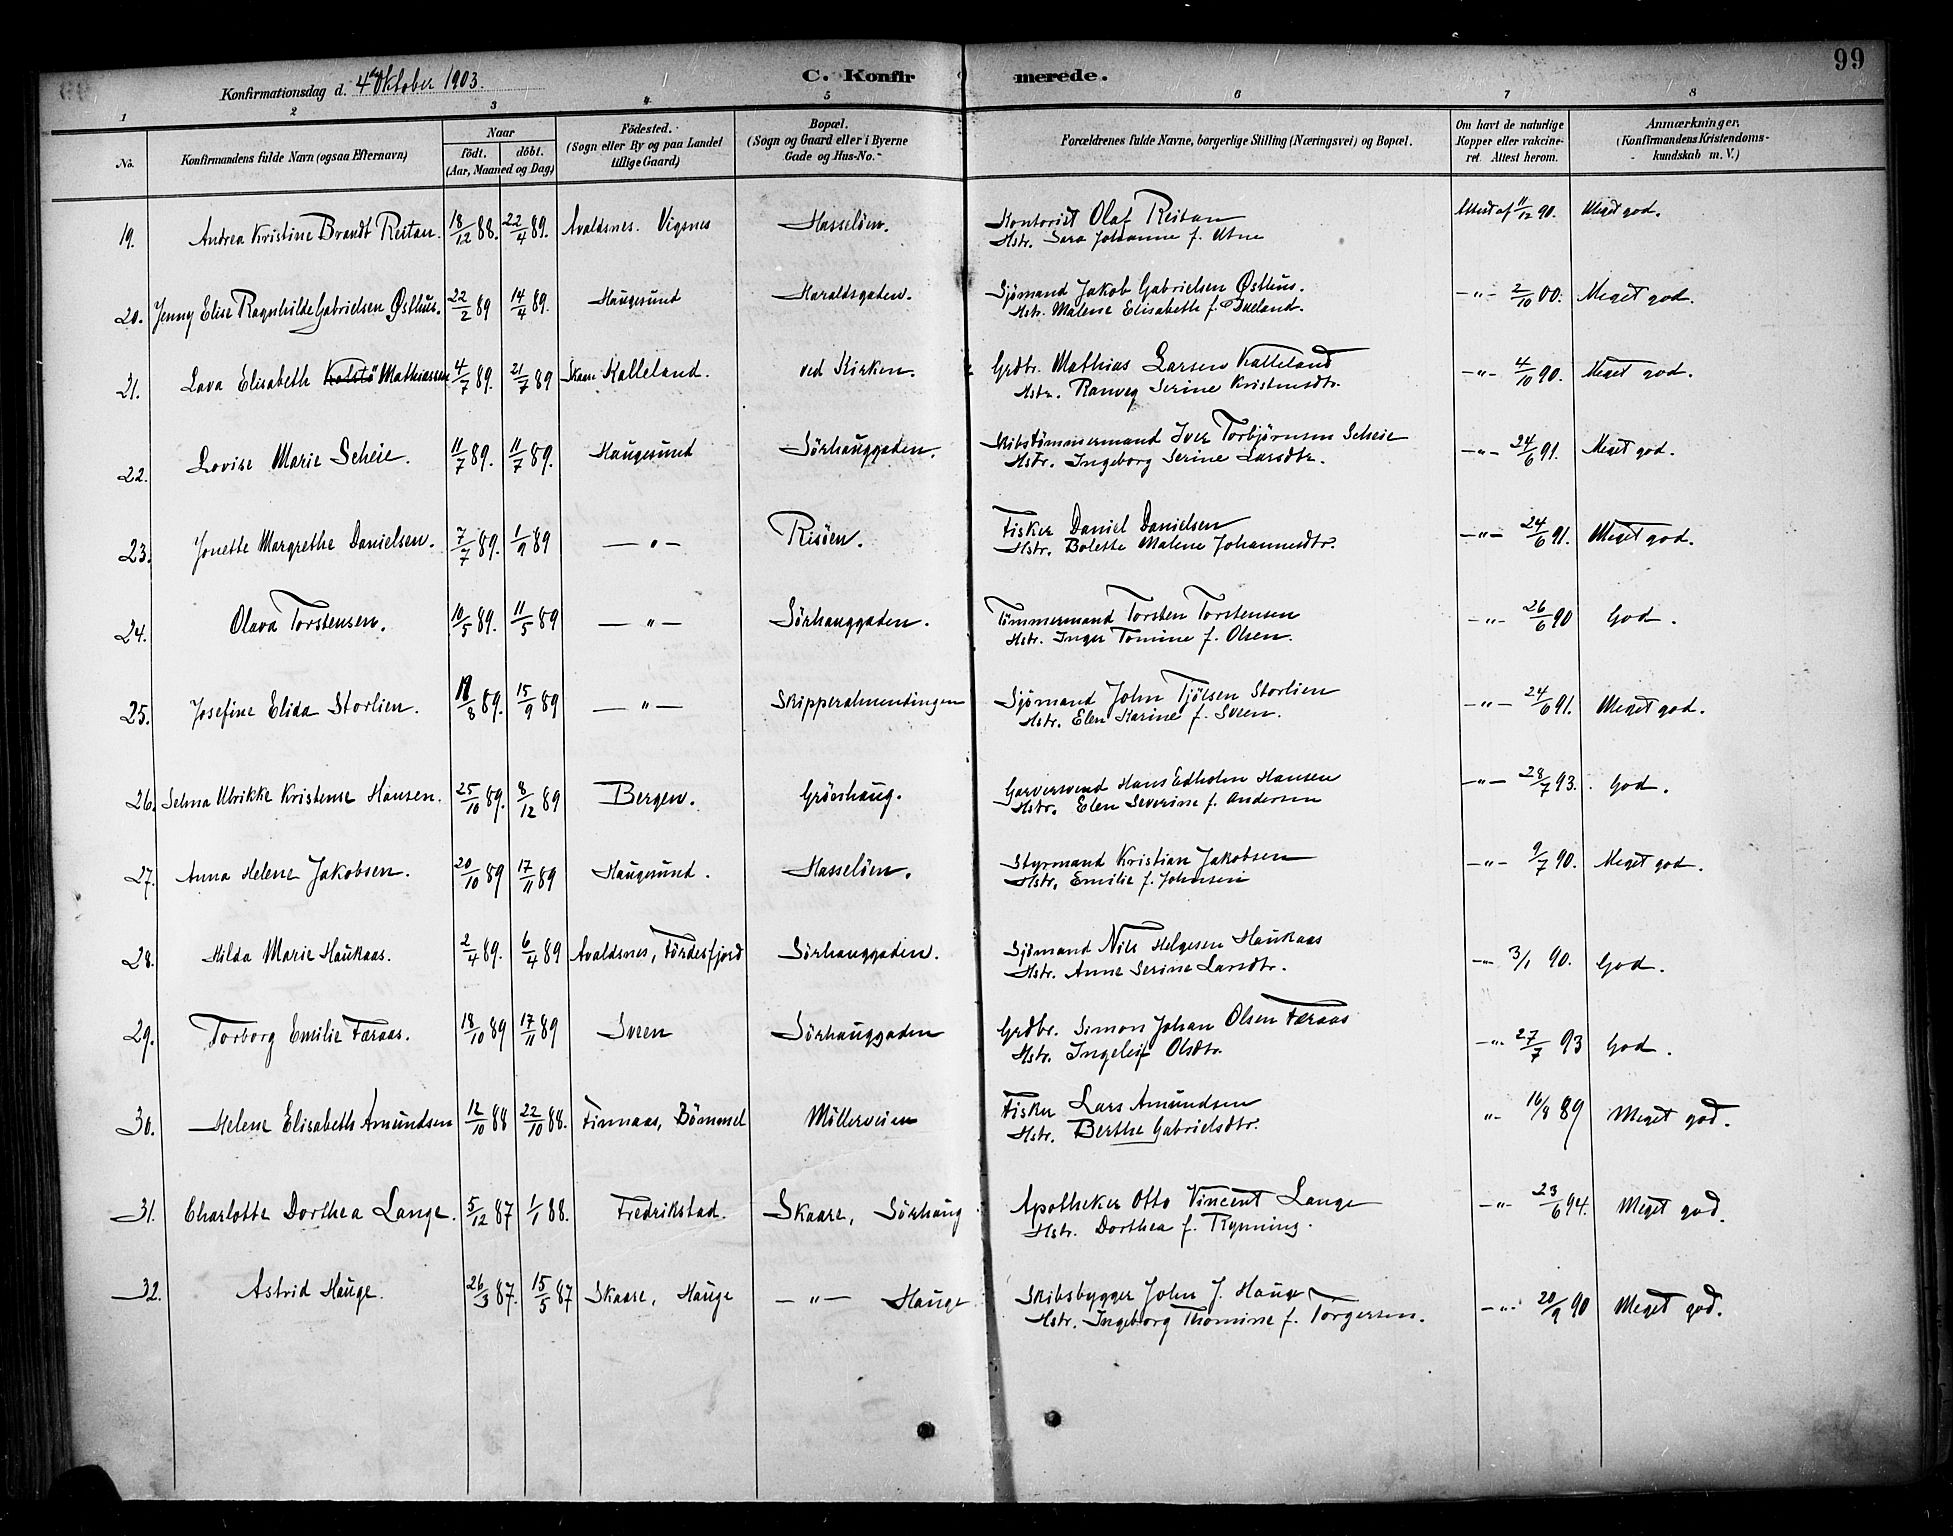 99
Konfirmationsdag d. 4de Oktober 1903.
C. Konfirmerede.
1 2 3 4 5 6 7 8
No. Konfirmandens fulde Navn (ogsaa Efternavn) Naar födt. döbt. (Aar, Maaned og Dag) Födested. (Sogn eller By og paa Landet tillige Gaard) Bopæl. (Sogn og Gaard eller i Byerne Gade og Hus-No. Forældrenes fulde Navne, borgerlige Stilling (Næringsvei) og Bopæl. Om havt de naturlige Kopper eller vakcineret. Attest herom. Anmærkninger. (Konfirmandens Kristendomskundskab m. V.)
19. Andrea Kristine Brandt Reitan. 18/12 88. 22/4 89. Avaldsnes. Vigsnes Hasselöen. Kontorist Olaf Reitan Attest af 11/12 90. Meget god.
Hstr. Sara Johanne f. Utne
20. Jenny Elise Ragnhilde Gabrielsen Østhus. 22/2 89 14/4 89. Haugesund Haraldsgaden. Sjömand Jakob Gabrielsen Østhus. —"— 2/10 00. Meget god.
Hstr. Malene Elisabeth f.
21. Lava Elisabeth Kolstö Mathiassen 4/7 89. 21/7 89 Skaare Kalleland. ved Kirken. Grdbr. Mathias Larsen Kalleland —"— 4/10 90. Meget god.
Hstr. Ranveg Serine Kristensdtr.
22. Lovise Marie Scheie. 11/7 89. 11/7 89. Haugesund Sörhauggaden. Skibstömmermand Iver Torbjørnsen Scheie —"— 24/6 91. Meget god.
Hstr. Ingeborg Serine Larsdtr.
23. Jonette Margrethe Danielsen. 7/7 89. 1/9 89 —"— Risöen. Fisker Daniel Danielsen —"— 24/6 91. Meget god.
Hstr. Bolette Malene Johannesdtr.
24. Olava Torstensen. 10/5 89. 11/5 89 —"— Sörhauggaden. Tömmermand Torsten Torstensen —"— 26/6 90 God.
Hstr. Inger Tomine f. Olsen.
25. Josefine Elida Storlien. /8 89. 15/9 89 —"— Skipperalmendingen Sjömand John Tjölsen Storlien —"— 24/6 91. Meget god.
Hstr. Elen Karine f. Sveen.
26. Selma Ulrikke Kristense Hansen. 25/10 89. 8/12 89 Bergen. Grönhaug. Garversvend Hans Edholm Hansen —"— 28/7 93. God.
Hstr. Elen Severine f. Andersen
27. Anna Helene Jakobsen. 20/10 89 17/11 89 Haugesund. Hasselöen. Styrmand Kristian Jakobsen —"— 9/7 90. Meget god.
Hstr. Emilie f. Johnsen
28. Hilda Marie Haukaas. 2/4 89. 6/4 89 Avaldsnes, Fördesfjord Sörhauggaden. Sjömand Nils Helgesen Haukaas —"— 3/1 90. God.
Hstr. Anne Serine Larsdtr.
29. Torborg Emilie Færaas. 18/10 89 17/11 89 Sveen Sörhauggaden Grdbr. Simon Johan Olsen Færaas —"— 27/7 93 God.
Hstr. Ingeleif Olsdtr.
30. Helene Elisabeth Amundsen 12/10 88 22/10 88. Finnaas, Bömmel Möllerveien Fisker Lars Amundsen " 16/8 89 Meget god.
Hstr. Berthe Gabrielsdtr.
31. Charlotte Dorthea Lange. 5/12 87 1/1 88. Fredrikstad. Skaare, Sörhaug Apotheker Otto Vincent Lange —"— 23/6 94. Meget god.
Hstr. Dorthea f. Rynning.
32. Astrid Hauge. 26/3 87. 15/5 87 Skaare, Hauge —"— Hauge Skibsbygger John J. Hauge —"— 20/9 90 Meget god.
Hstr. Ingeborg Thomine f. Torgersen.